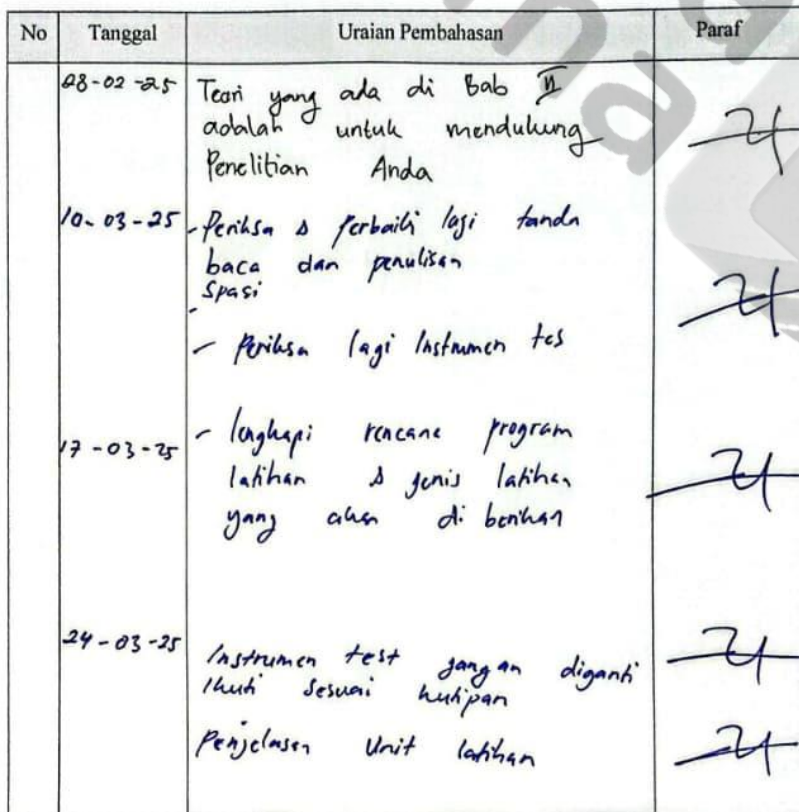 No Tanggal Uraian Pembahasan Paraf
28-02-25 Teori yang ada di Bab II
adalah untuk mendukung
Penelitian Anda
10-03-25 - Periksa & Perbaiki lagi tanda
baca dan penulisan
spasi
- Periksa lagi Instrumen tes
17-03-25 - lengkapi rencana program
latihan & jenis latihan
yang akan di berikan
24-03-25 Instrumen test jangan diganti
Ikuti sesuai kutipan
Penjelasan Unit latihan